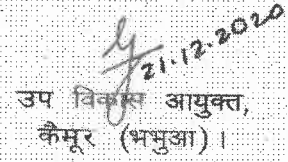 21.12.2020
उप विकास आयुक्त,
कैमूर (भभुआ)।